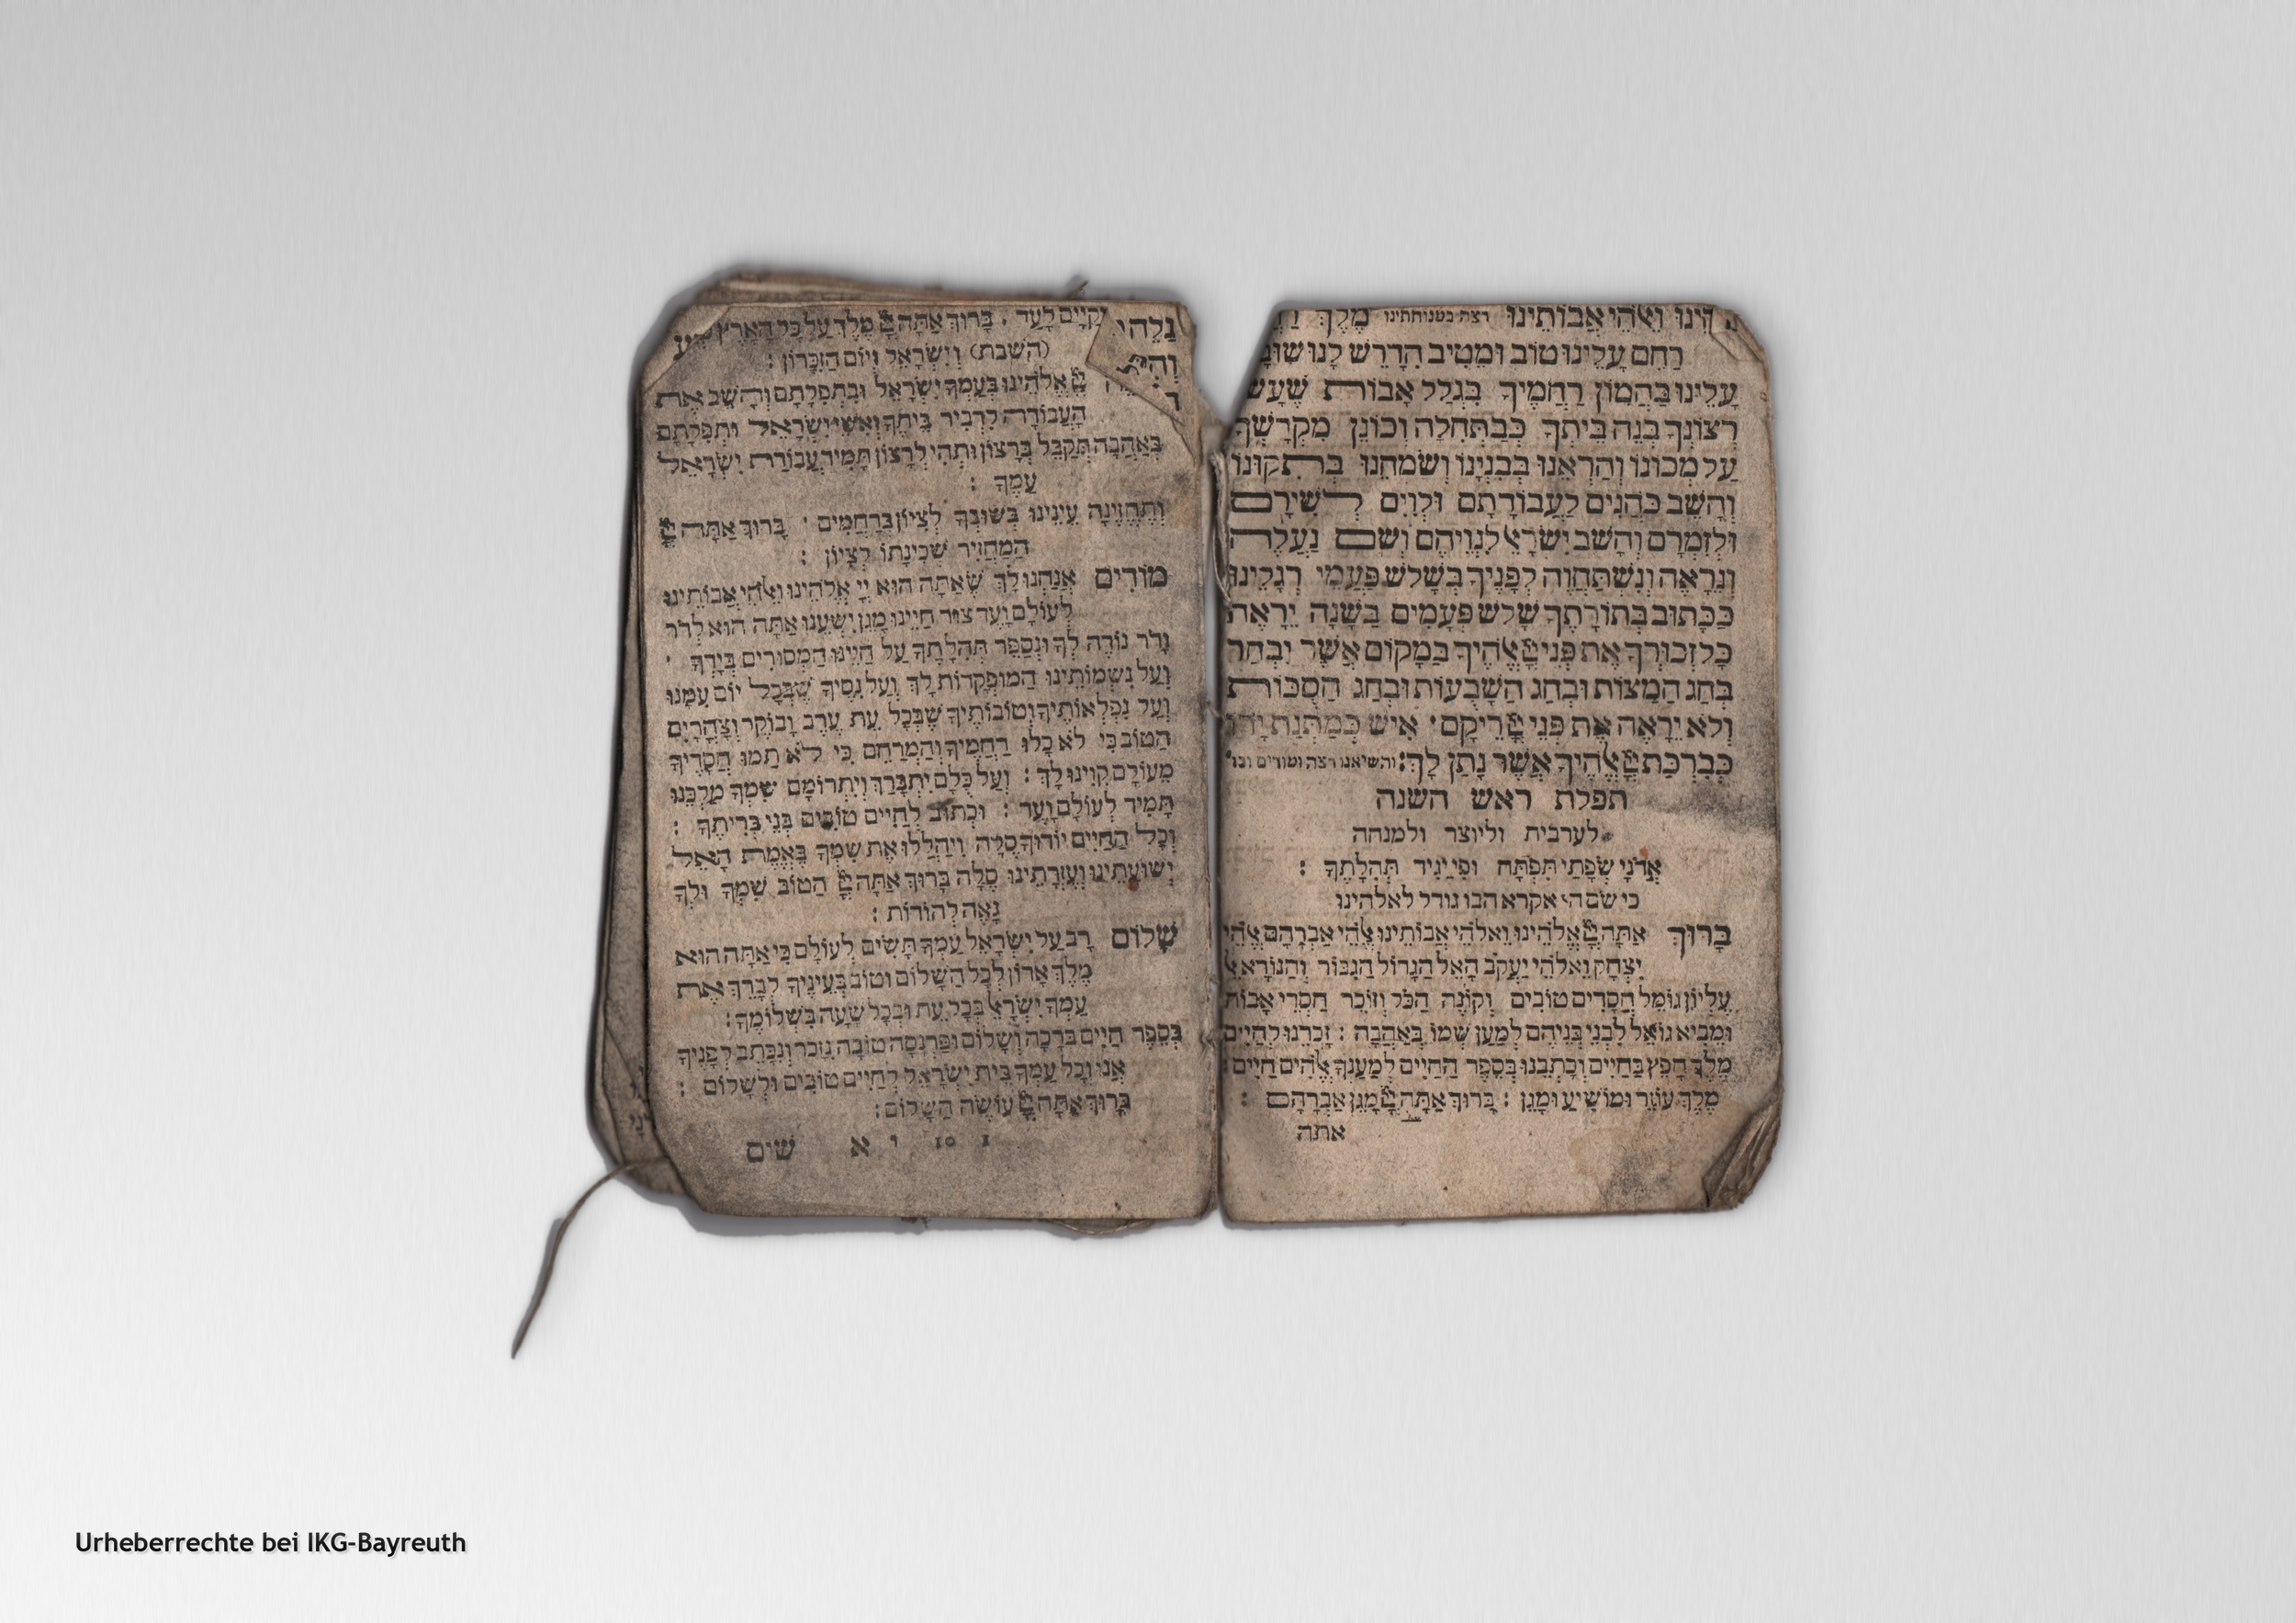 וֵאלֹהֵי אֲבוֹתֵינוּ רצה במנוחתינו מֶלֶךְ
רַחֵם עָלֵינוּ טוֹב וּמֵטִיב הִדָּרֶשׁ לָנוּ שׁוּבָ
עָלֵינוּ בַּהֲמוֹן רַחֲמֶיךָ בִּגְלַל אָבוֹת שֶׁעָשׂ
רְצוֹנֶךָ בְּנֵה בֵיתְךָ כְּבַתְּחִלָּה וְכוֹנֵן מִקְדָּשְׁךָ
עַל מְכוֹנוֹ וְהַרְאֵנוּ בְּבִנְיָנוֹ וְשַׂמְּחֵנוּ בְּתִקּוּנוֹ
וְהָשֵׁב כֹּהֲנִים לַעֲבוֹדָתָם וּלְוִיִּם לְשִׁירָם
וּלְזִמְרָם וְהָשֵׁב יִשְׂרָאֵל לִנְוֵיהֶם וְשָׁם נַעֲלֶה
וְנֵרָאֶה וְנִשְׁתַּחֲוֶה לְפָנֶיךָ בְּשָׁלֹשׁ פַּעֲמֵי רְגָלֵינוּ
כַּכָּתוּב בְּתוֹרָתֶךָ שָׁלֹשׁ פְּעָמִים בַּשָּׁנָה יֵרָאֶה
כָל זְכוּרְךָ אֶת פְּנֵי יְיָ אֱלֹהֶיךָ בַּמָּקוֹם אֲשֶׁר יִבְחַר
בְּחַג הַמַּצּוֹת וּבְחַג הַשָּׁבֻעוֹת וּבְחַג הַסֻּכּוֹת
וְלֹא יֵרָאֶה אֶת פְּנֵי יְיָ רֵיקָם· אִישׁ כְּמַתְּנַת יָדוֹ
כְּבִרְכַּת יְיָ אֱלֹהֶיךָ אֲשֶׁר נָתַן לָךְ: והשיאנו רצה ומודים וכו'
תפלת ראש השנה
לערבית וליוצר ולמנחה
אֲדֹנָי שְׂפָתַי תִּפְתָּח וּפִי יַגִּיד תְּהִלָּתֶךָ :
כי שם ה' אקרא הבו גודל לאלהינו
בָּרוּךְ אַתָּה יְיָ אֱלֹהֵינוּ וֵאלֹהֵי אֲבוֹתֵינוּ אֱלֹהֵי אַבְרָהָם אֱלֹהֵי
יִצְחָק וֵאלֹהֵי יַעֲקֹב הָאֵל הַגָּדוֹל הַגִּבּוֹר וְהַנּוֹרָא אֵל
עֶלְיוֹן גּוֹמֵל חֲסָדִים טוֹבִים וְקוֹנֵה הַכֹּל וְזוֹכֵר חַסְדֵי אָבוֹת
וּמֵבִיא גוֹאֵל לִבְנֵי בְנֵיהֶם לְמַעַן שְׁמוֹ בְּאַהֲבָה : זָכְרֵנוּ לְחַיִּים
מֶלֶךְ חָפֵץ בַּחַיִּים וְכָתְבֵנוּ בְּסֵפֶר הַחַיִּים לְמַעַנְךָ אֱלֹהִים חַיִּים
מֶלֶךְ עוֹזֵר וּמוֹשִׁיעַ וּמָגֵן : בָּרוּךְ אַתָּה יְיָ מָגֵן אַבְרָהָם :
אתה
וְקַיָּים לָעַד · בָּרוּךְ אַתָּה יְיָ מֶלֶךְ עַל כָּל הָאָרֶץ
(השבת) וְיִשְׂרָאֵל וְיוֹם הַזִּכָּרוֹן :
יְיָ אֱלֹהֵינוּ בְּעַמְּךָ יִשְׂרָאֵל וּבִתְפִלָּתָם וְהָשֵׁב אֶת
הָעֲבוֹדָה לִדְבִיר בֵּיתֶךָ וְאִשֵּׁי יִשְׂרָאֵל וּתְפִלָּתָם
בְּאַהֲבָה תְקַבֵּל בְּרָצוֹן וּתְהִי לְרָצוֹן תָּמִיד עֲבוֹדַת יִשְׂרָאֵל
עַמֶּךָ :
וְתֶחֱזֶינָה עֵינֵינוּ בְּשׁוּבְךָ לְצִיּוֹן בְּרַחֲמִים · בָּרוּךְ אַתָּה יְיָ
הַמַּחֲזִיר שְׁכִינָתוֹ לְצִיּוֹן :
מוֹדִים אֲנַחְנוּ לָךְ שָׁאַתָּה הוּא יְיָ אֱלֹהֵינוּ וֵאלֹהֵי אֲבוֹתֵינוּ
לְעוֹלָם וָעֶד צוּר חַיֵּינוּ מָגֵן יִשְׁעֵנוּ אַתָּה הוּא לְדֹר
וָדֹר נוֹדֶה לְּךָ וּנְסַפֵּר תְּהִלָּתֶךָ עַל חַיֵּינוּ הַמְּסוּרִים בְּיָדֶךָ ·
וְעַל נִשְׁמוֹתֵינוּ הַפְּקֻדוֹת לָךְ וְעַל נִסֶּיךָ שֶׁבְּכָל יוֹם עִמָּנוּ
וְעַל נִפְלְאוֹתֶיךָ וְטוֹבוֹתֶיךָ שֶׁבְּכָל עֵת עֶרֶב וָבוֹקֶר וְצָהֳרָיִם
הַטּוֹב כִּי לֹא כָלוּ רַחֲמֶיךָ וְהַמְרַחֵם כִּי לֹא תַמּוּ חֲסָדֶיךָ
מֵעוֹלָם קִוִּינוּ לָךְ : וְעַל כֻּלָּם יִתְבָּרַךְ וְיִתְרוֹמַם שִׁמְךָ מַלְכֵּנוּ
תָּמִיד לְעוֹלָם וָעֶד : וּכְתוֹב לְחַיִּים טוֹבִים בְּנֵי בְרִיתֶךָ :
וְכָל הַחַיִּים יוֹדוּךָ סֶּלָה וִיהַלְלוּ אֶת שִׁמְךָ בֶּאֱמֶת הָאֵל
יְשׁוּעָתֵינוּ וְעֶזְרָתֵינוּ סֶלָה בָּרוּךְ אַתָּה יְיָ הַטּוֹב שִׁמְךָ וּלְךָ
נָאֶה לְהוֹדוֹת :
שָׁלוֹם רָב עַל יִשְׂרָאֵל עַמְּךָ תָּשִׂים לְעוֹלָם כִּי אַתָּה הוּא
מֶלֶךְ אָדוֹן לְכָל הַשָּׁלוֹם וְטוֹב בְּעֵינֶיךָ לְבָרֵךְ אֶת
עַמְּךָ יִשְׂרָאֵל בְּכָל עֵת וּבְכָל שָׁעָה בִּשְׁלוֹמֶךָ :
בְּסֵפֶר חַיִּים בְּרָכָה וְשָׁלוֹם וּפַרְנָסָה טוֹבָה נִזָּכֵר וְנִכָּתֵב לְפָנֶיךָ
אָנוּ וְכָל עַמְּךָ בֵּית יִשְׂרָאֵל לְחַיִּים טוֹבִים וּלְשָׁלוֹם :
בָּרוּךְ אַתָּה יְיָ עוֹשֵׂה הַשָּׁלוֹם :
שים
Urheberrechte bei IKG-Bayreuth